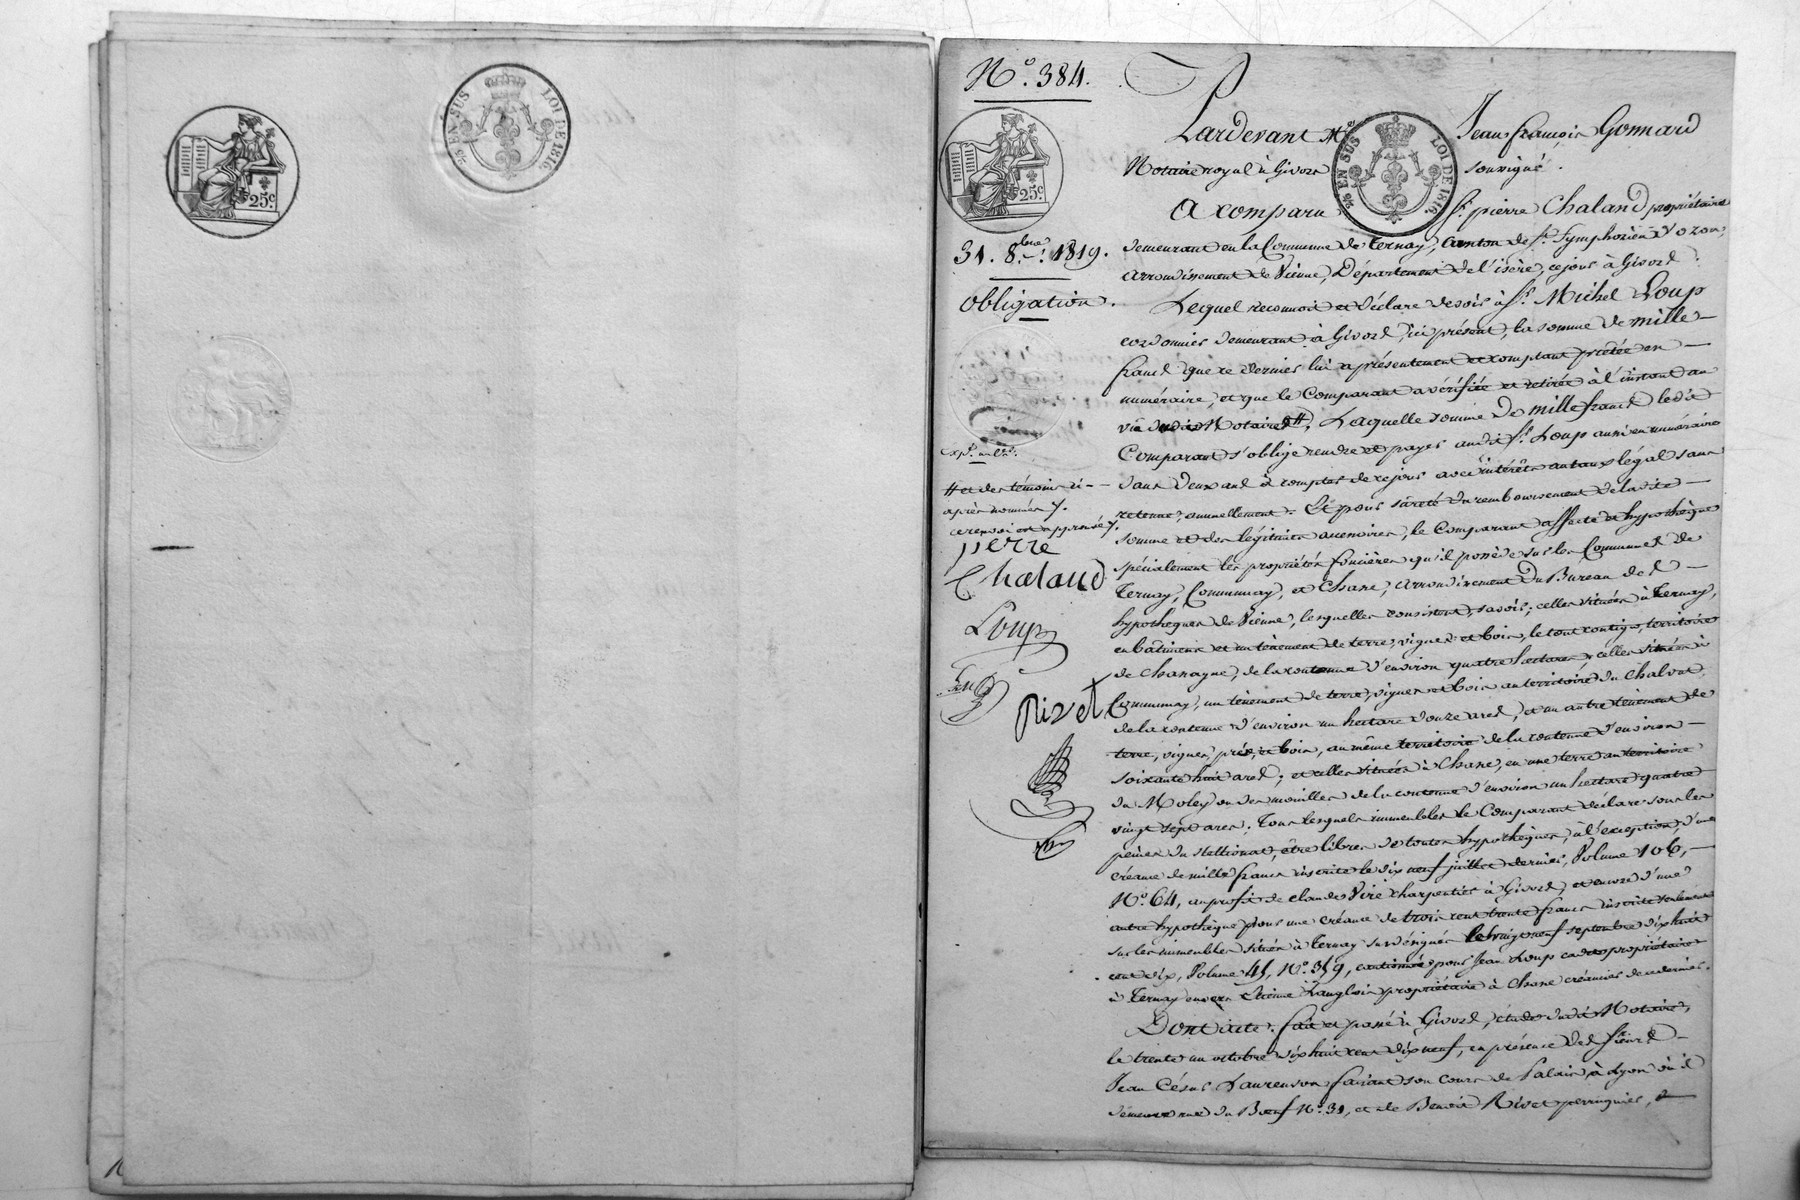 25 EN SUS LOI DE 1816.
25c.
N.o 384.
Pardevant Me. Jean françois Gonnard
Notaire royal à Givors soussigné.
25 EN SUS LOI DE 1816.
25c.
A comparu Sr. pierre Chaland propriétaire
31. 8bre. 1819.
demeurant en la Commune de Ternay, canton de St. Symphorien d'ozon,
arrondissement de Vienne, Département de l'isère, ce jour à Givors
obligation.
Lequel reconnoit et déclare devoir à Sr. Michel Loup
cordonnier demeurant à Givors, ici présent, la somme de mille
francs que ce dernier lui a présentement et comptant prêtée en
numéraire, et que le Comparant a vérifiée et retirée à l'instant au
vu dudit Notaire #, Laquelle somme de mille francs ledit
Comparant s'oblige rendre et payer audit Sr. Loup aussi en numéraire
dans deux ans à compter de ce jour avec intérêts au taux légal sans
retenue, annuellement. Et pour sûreté du remboursement de ladite
somme et des légitimes accessoires, le Comparant affecte et hypothèque
spécialement les propriétés foncières qu'il possède sur les Communes de
Ternay, Communay, et Chane, arrondissement du Bureau des
hypothèques de Vienne, lesquelles consistent, savoir; celles situées à Ternay,
en bâtimens et un tènement de terre, vignes et bois, le tout contigu, territoire
de Chanagne, de la contenue d'environ quatre hectares; celles situées à
Communay, un tènement de terre, vignes et bois au territoire du Chalout,
de la contenue d'environ un hectare douze ares, et un autre tènement de
terre, vignes, prés, et bois, au même territoire de la contenue d'environ
soixante huit ares; et celles situées à Chane, en une terre au territoire
du Moley ou des mouilles de la contenue d'environ un hectare quatre
vingt sept ares. Tous lesquels immeubles le Comparant déclare sous les
peines du stellionat, être libres de toutes hypothèques, à l'exception d'une
créance de mille francs inscrite le dix neuf juillet dernier, Volume 106,
No. 64, au profit de claude Viré charpentier à Givors, et encore d'une
autre hypothèque pour une créance de trois cent trente francs inscrite seulement
sur les immeubles situés à Ternay susdésignés le vingt neuf septembre dix huit
cent dix, Volume 41, No. 319, cautionnée pour Jean Loup cadet propriétaire
à Ternay envers Etienne Langlois propriétaire à Chane créancier de ce dernier.
Dont acte: fait et passé à Givors, étude dudit Notaire,
le trente un octobre dix huit cent dix neuf, en présence des sieurs
Jean César Laurenson faisant son cours de Palais à Lyon où il
demeure rue du Boeuf No. 31, et de Benoit Rivet perruquier,
# et des témoins ci-
après nommés
ce renvoi est approuvé
pierre
Chaland
Loup
Rivet